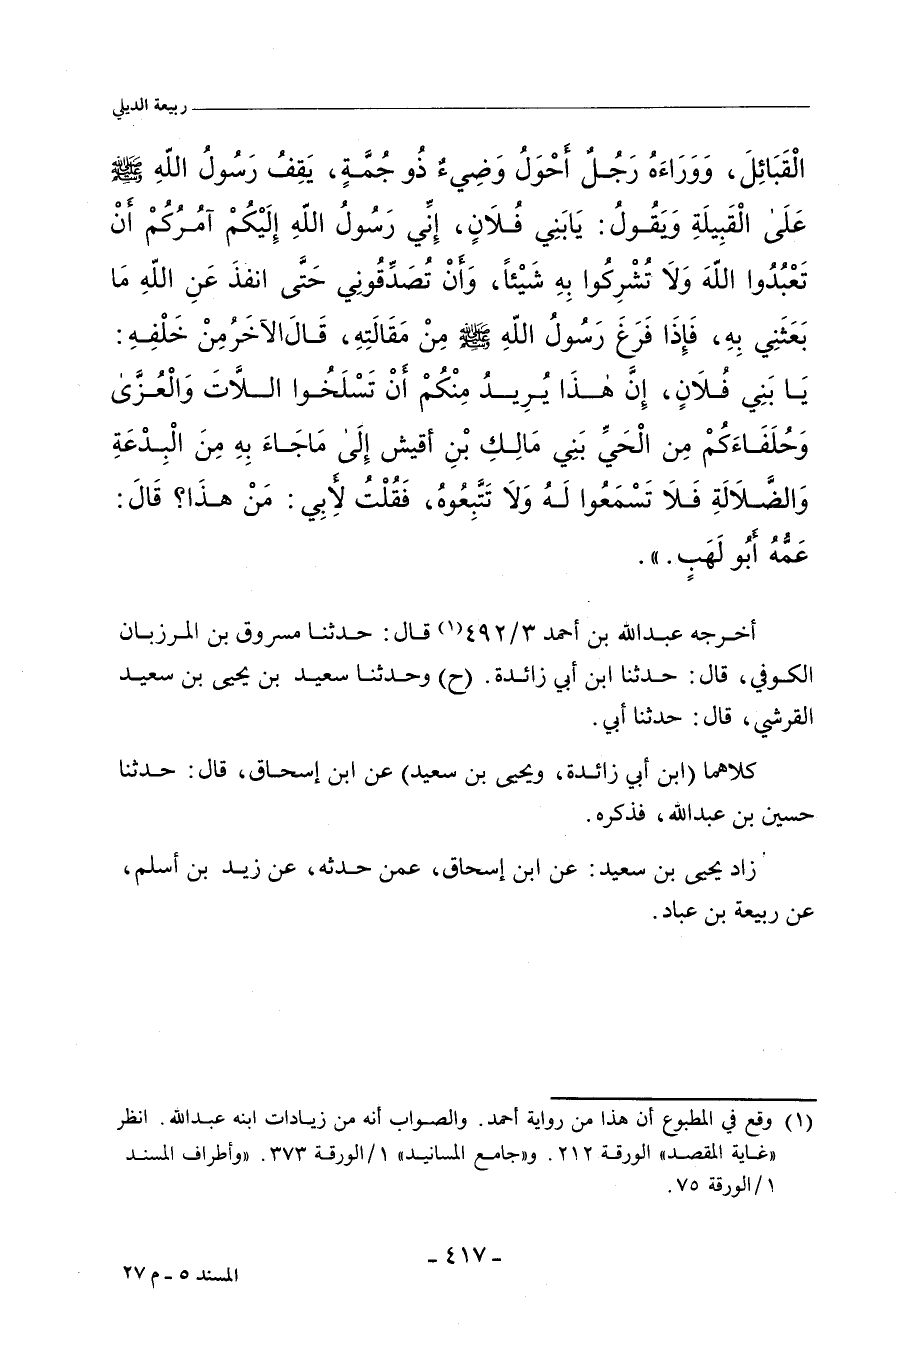 ربيعة الديلي
الْقَبَائِلَ، وَوَرَاءَهُ رَجُلٌ أَحْوَلُ وَضِيءٌ ذُو جُمَّةٍ، يَقِفُ رَسُولُ اللّهِ ﷺ
عَلَىٰ الْقَبِيلَةِ وَيَقُولُ: يَابَنِي فُلَانٍ، إِنِّي رَسُولُ اللّهِ إِلَيْكُمْ آمُرُكُمْ أَنْ
تَعْبُدُوا اللّهَ وَلَا تُشْرِكُوا بِهِ شَيْئاً، وَأَنْ تُصَدِّقُونِي حَتَّى انفذَ عَنِ اللّهِ مَا
بَعَثَنِي بِهِ، فَإِذَا فَرَغَ رَسُولُ اللّهِ ﷺ مِنْ مَقَالَتِهِ، قَالَ الآخَرُ مِنْ خَلْفِهِ:
يَا بَنِي فُلَانٍ، إِنَّ هٰذَا يُرِيدُ مِنْكُمْ أَنْ تَسْلَخُوا اللَّاتَ وَالْعُزَّىٰ
وَحُلَفَاءَكُمْ مِن الْحَيِّ بَنِي مَالِكِ بْنِ أقيش إِلَىٰ مَاجَاءَ بِهِ مِنَ الْبِدْعَةِ
وَالضَّلَالَةِ فَلَا تَسْمَعُوا لَهُ وَلَا تَتَّبِعُوهُ، فَقُلْتُ لأَبِي: مَنْ هذَا؟ قَالَ:
عَمُّهُ أَبُو لَهَبٍ.».
أخرجه عبدالله بن أحمد ٤٩٢/٣(١) قال: حدثنا مسروق بن المرزبان
الكوفي، قال: حدثنا ابن أبي زائدة. (ح) وحدثنا سعيد بن يحيى بن سعيد
القرشي، قال: حدثنا أبي.
كلاهما (ابن أبي زائدة، ويحيى بن سعيد) عن ابن إسحاق، قال: حدثنا
حسين بن عبدالله، فذكره.
زاد يحيى بن سعيد: عن ابن إسحاق، عمن حدثه، عن زيد بن أسلم،
عن ربيعة بن عباد.
(١) وقع في المطبوع أن هذا من رواية أحمد. والصواب أنه من زيادات ابنه عبدالله. انظر
«غاية المقصد» الورقة ٢١٢. و«جامع المسانيد» ١/الورقة ٣٧٣. «وأطراف المسند
١/الورقة ٧٥.
- ٤١٧ -
المسند ٥ - م ٢٧